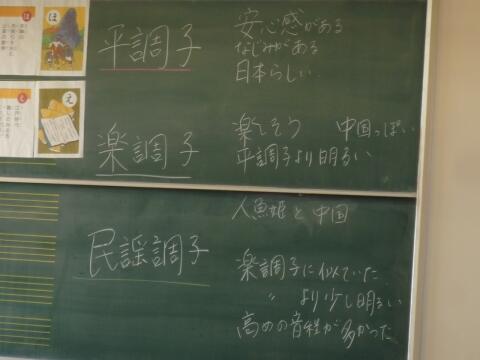 ほ
え
平調子
安心感がある
なじみがある
日本らしい
楽調子
楽しそう 中国っぽい
平調子より明るい
民謡調子
人魚姫と中国
楽調子に似ていた
〃 より少し明るい
高めの音程が多かった